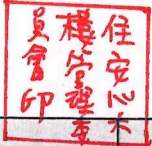 住安心大
樓管理委
員會印